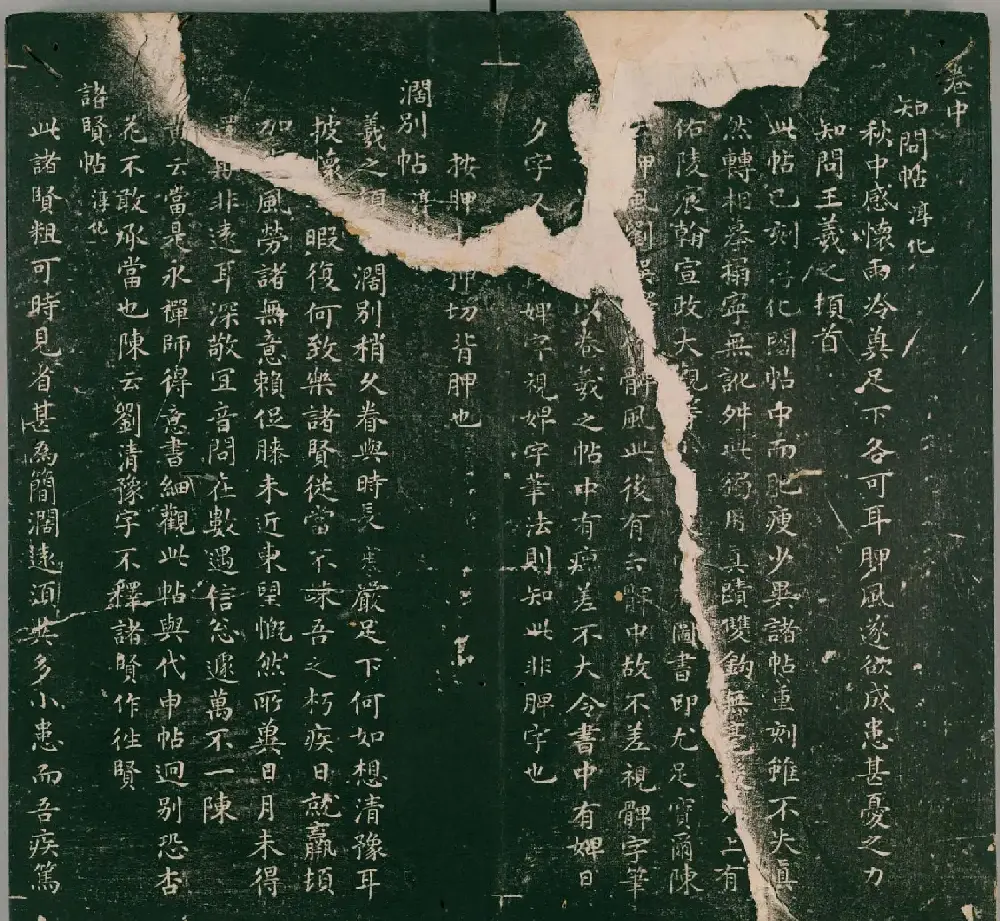 卷中
知問帖 淳化
秋中感懷雨冷冀足下各可耳胛風遂欲成患甚憂之力
知問王羲之頓首
此帖已刻淳化閣帖中而肥瘦少異諸帖重刻雖不失真
然轉相摹搨寧無訛舛此獨用真蹟雙鈎無 上有
佑陵宸翰宣政大觀 圖書印尤足寶爾陳
胛風劉 髀風此後有云髀中故不差視髀字筆
以卷羲之帖中有 差不大令書中有婢日
夕字又 婢字視婢字筆法則知此非脾字也
按胛 押切背胛也
闊別帖 淳
羲之頓 闊別稍久眷與時長 嚴足下何如想清豫耳
披懷 暇復何致樂諸賢從當不 吾之朽疾日就羸頓
加 風勞諸無意賴促膝未近東望慨然所冀日月未得
非遠耳深敬宜音問在數遇信怱遽萬不一陳
云當是永禪師得意書細觀此帖與代申帖迥別恐杏
花不敢承當也陳云劉清豫字不釋諸賢作徃賢
諸賢帖 淳化
此諸賢粗可時見省甚為簡闊遠須異多小患而吾疾篤